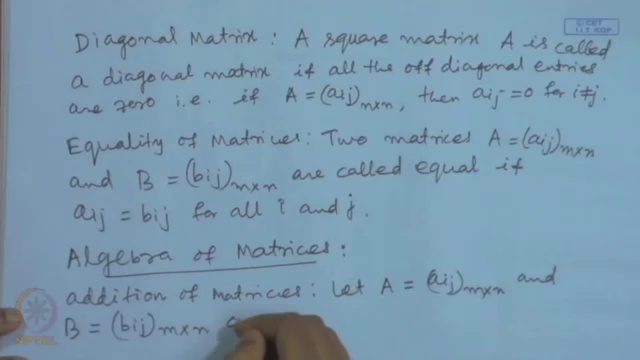 © CET
I.I.T. KGP
Diagonal Matrix : A square matrix A is called
a diagonal matrix if all the off diagonal entries
are zero i.e. if A = (aij)n×n, then aij = 0 for i≠j.
Equality of Matrices: Two matrices A = (aij)m×n
and B = (bij)m×n are called equal if
aij = bij for all i and j.
Algebra of Matrices:
addition of Matrices: Let A = (aij)m×n and
B = (bij)m×n
NPTEL